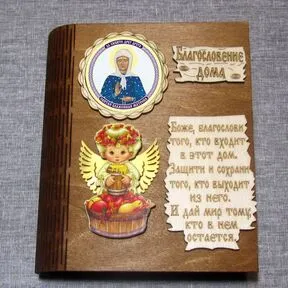 Благословение
дома
Боже, благослови
того, кто входит
в этот дом.
Защити и сохрани
того, кто выходит
из него.
И дай мир тому,
кто в нем
остается.